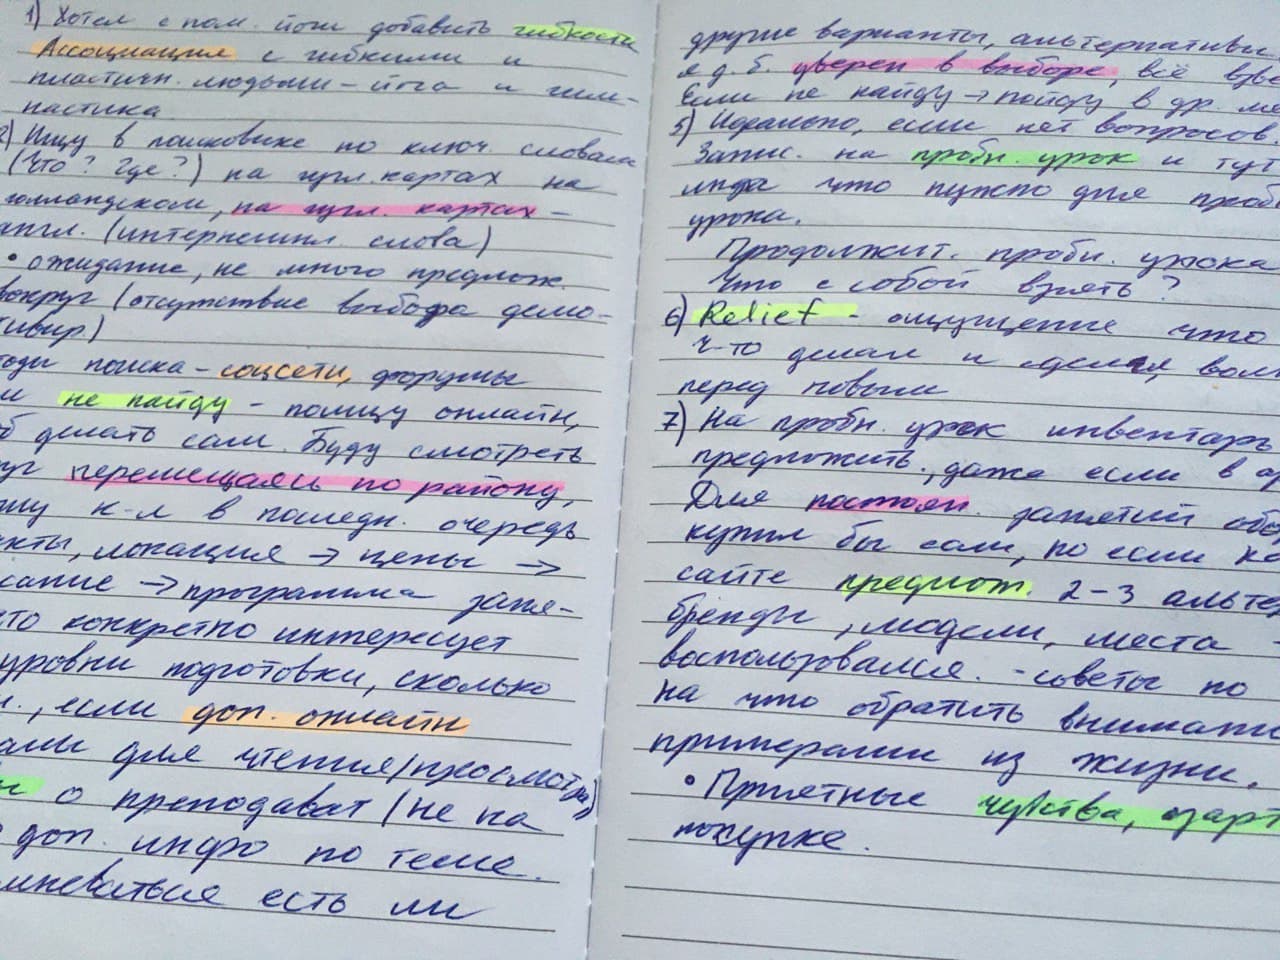 1) Хотел с пом. йоги добавить гибкости
Ассоциация с гибкими и
пластичн. людьми – йога и гим-
настика
2) Ищу в поисковике по ключ. словам
(Что? Где?) на гугл.картах на
голландском, на гугл. картах –
англ. (интернешнл. слова)
• ожидание, не много предлож.
вокруг (отсутствие выбора демо-
тивир)
оди поиска – соцсети, форумы
и не найду – поищу онлайн,
б делать сам. Буду смотреть
уг перемещаясь по району,
ишу к-л в последн. очередь
кты, локация → цены →
сание → программа заня-
то конкретно интересует
уровни подготовки, сколько
н., если доп. онлайн
ами для чтения/просмотра)
и о преподават (не на
доп. инфо по теме.
мневаться есть ли
другие варианты, альтернативы
я д. б. уверен в выборе, всё взве
Если не найду → пойду в др. ме
5) Идеально, если нет вопросов.
Запис. на пробн. урок и тут
инфа что нужно для проб
урока.
Продолжит. пробн. урока
Что с собой взять?
6) Relief – ощущение что
ч-то делал и сделал, вол
перед новым
7) На пробн. урок инвентарь
предложить, даже если в ар
Для постоян. занятий об
купил бы сам, но если на
сайте предлож. 2–3 альте
бренды, модели, места –
воспользовался. – советы по
на что обратить внимани
примерами из жизни.
• Приятные чувства, азарт
покупке.